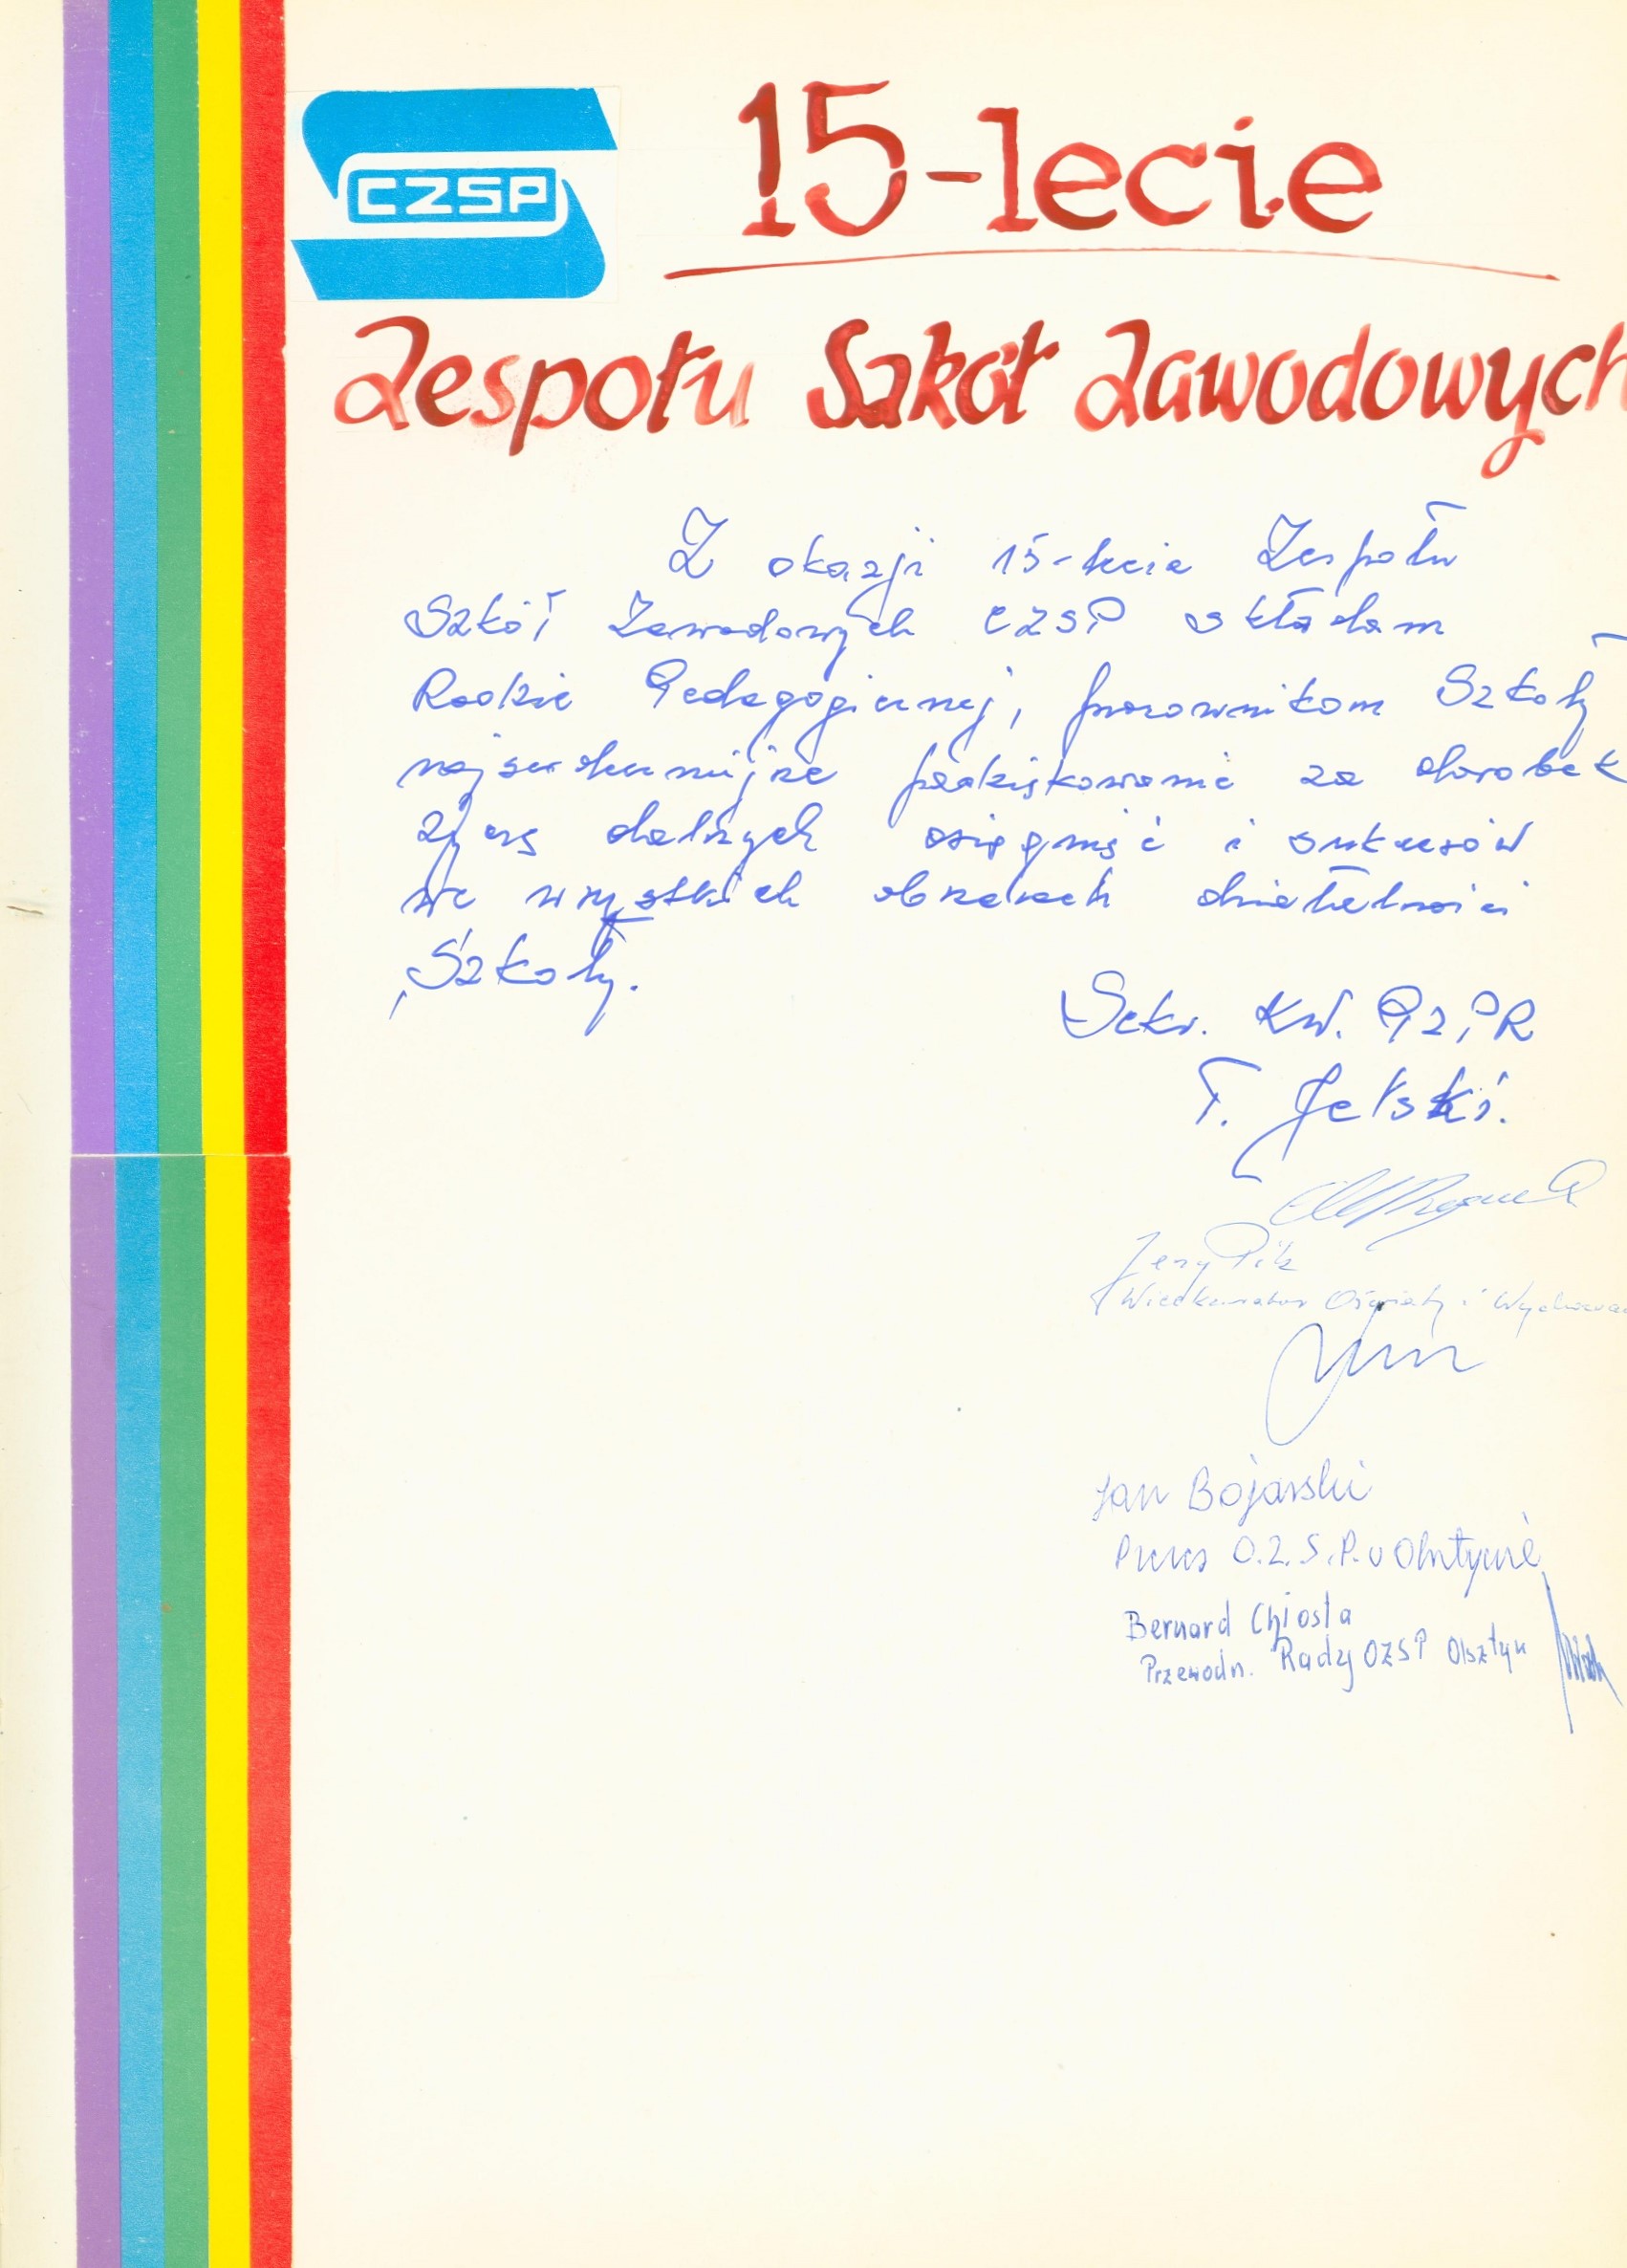 CZSP
15-lecie
Zespołu Szkół Zawodowych
Z okazji 15-lecia Zespołu
Szkół Zawodowych CZSP składam
Radzie Pedagogicznej, pracownikom Szkoły
najserdeczniejsze podziękowanie za dorobek
życzę dalszych osiągnięć i sukcesów
we wszystkich obszarach działalności
Szkoły.
Sekr. KW. PZPR
T. Jelski.
Jerzy Pik
Wicekurator Oświaty i
Jan Bojarski
Prezes O.Z.S.P. w Olsztynie
Bernard Chiosta
Przewodn. Rady OZSP Olsztyn